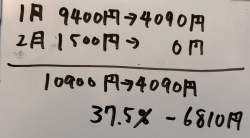 1月 9400円→4090円
2月 1500円→ 0円
10900円→4090円
37.5% -6810円